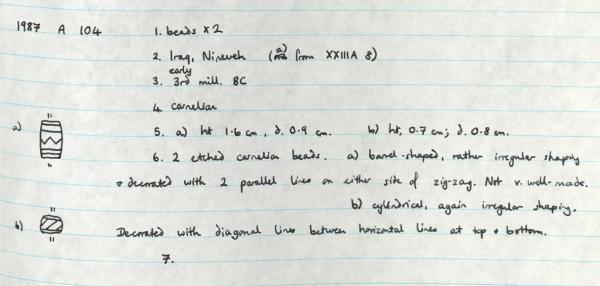 1987 A 104 1. beads x 2
2. Iraq, Nineveh (a) from XXIIIA 8)
early
3. 3rd mill. BC
4. carnelian
a) 5. a) ht 1.6 cm, d. 0.9 cm. b) ht, 0.7 cm; d. 0.8 cm.
6. 2 etched carnelian beads. a) barrel-shaped, rather irregular shaping
& decorated with 2 parallel lines on either side of zig-zag. Not v. well-made.
b) cylindrical, again irregular shaping.
b) Decorated with diagonal lines between horizontal lines at top & bottom.
7.